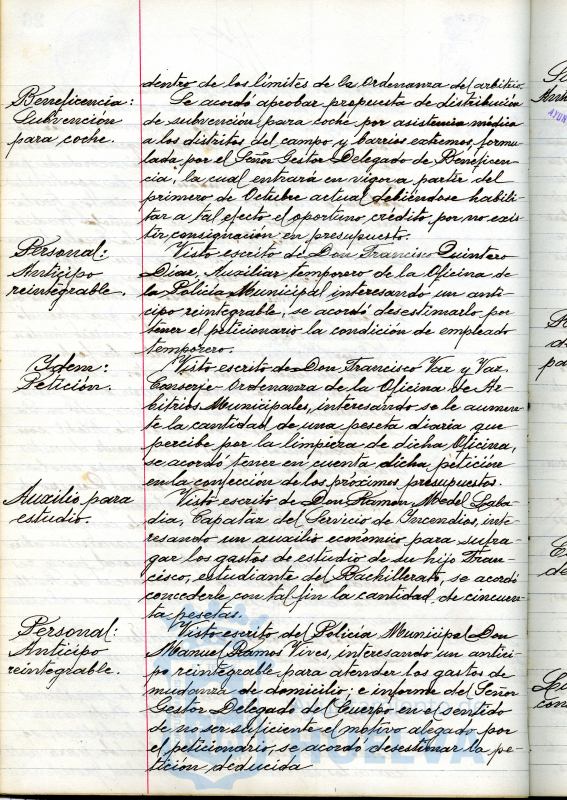 dentro de los límites de la Ordenanza del arbitrio.
Beneficencia: Subvención para coche.
Se acordó aprobar propuesta de distribución
de subvención para coche por asistencia médica
a los distritos del campo y barrios extremos, formu-
lada por el Señor Gestor Delegado de Beneficen-
cia, la cual entrará en vigor a partir del
primero de Octubre actual debiéndose habili-
tar a tal efecto el oportuno crédito, por no exis-
tir consignación en presupuesto.
Personal: Anticipo reintegrable.
Visto escrito de Don Francisco Quintero
Díaz, Auxiliar temporero de la Oficina de
la Policía Municipal interesando un anti-
cipo reintegrable, se acordó desestimarlo por
tener el peticionario la condición de empleado
temporero.
Ydem: Petición.
Visto escrito de Don Francisco Vaz y Vaz.
Conserje-Ordenanza de la Oficina de Ar-
bitrios Municipales, interesando se le aumen-
te la cantidad de una peseta diaria que
percibe por la limpieza de dicha Oficina,
se acordó tener en cuenta dicha petición
en la confección de los próximos presupuestos.
Auxilio para estudio.
Visto escrito de Don Ramon Medel Laba-
dia, Capataz del Servicio de Incendios, inte-
resando un auxilio económico para sufra-
gar los gastos de estudio de su hijo Fran-
cisco, estudiante de Bachillerato, se acordó
concederle con tal fin la cantidad de cincuen-
ta pesetas.
Personal: Anticipo reintegrable.
Visto escrito del Policía Municipal Don
Manuel Ramos Vives, interesando un antici-
po reintegrable para atender los gastos de
mudanza de domicilio; e informe del Señor
Gestor Delegado del Cuerpo en el sentido
de no ser suficiente el motivo alegado por
el peticionario, se acordó desestimar la pe-
tición deducida
HUELVA